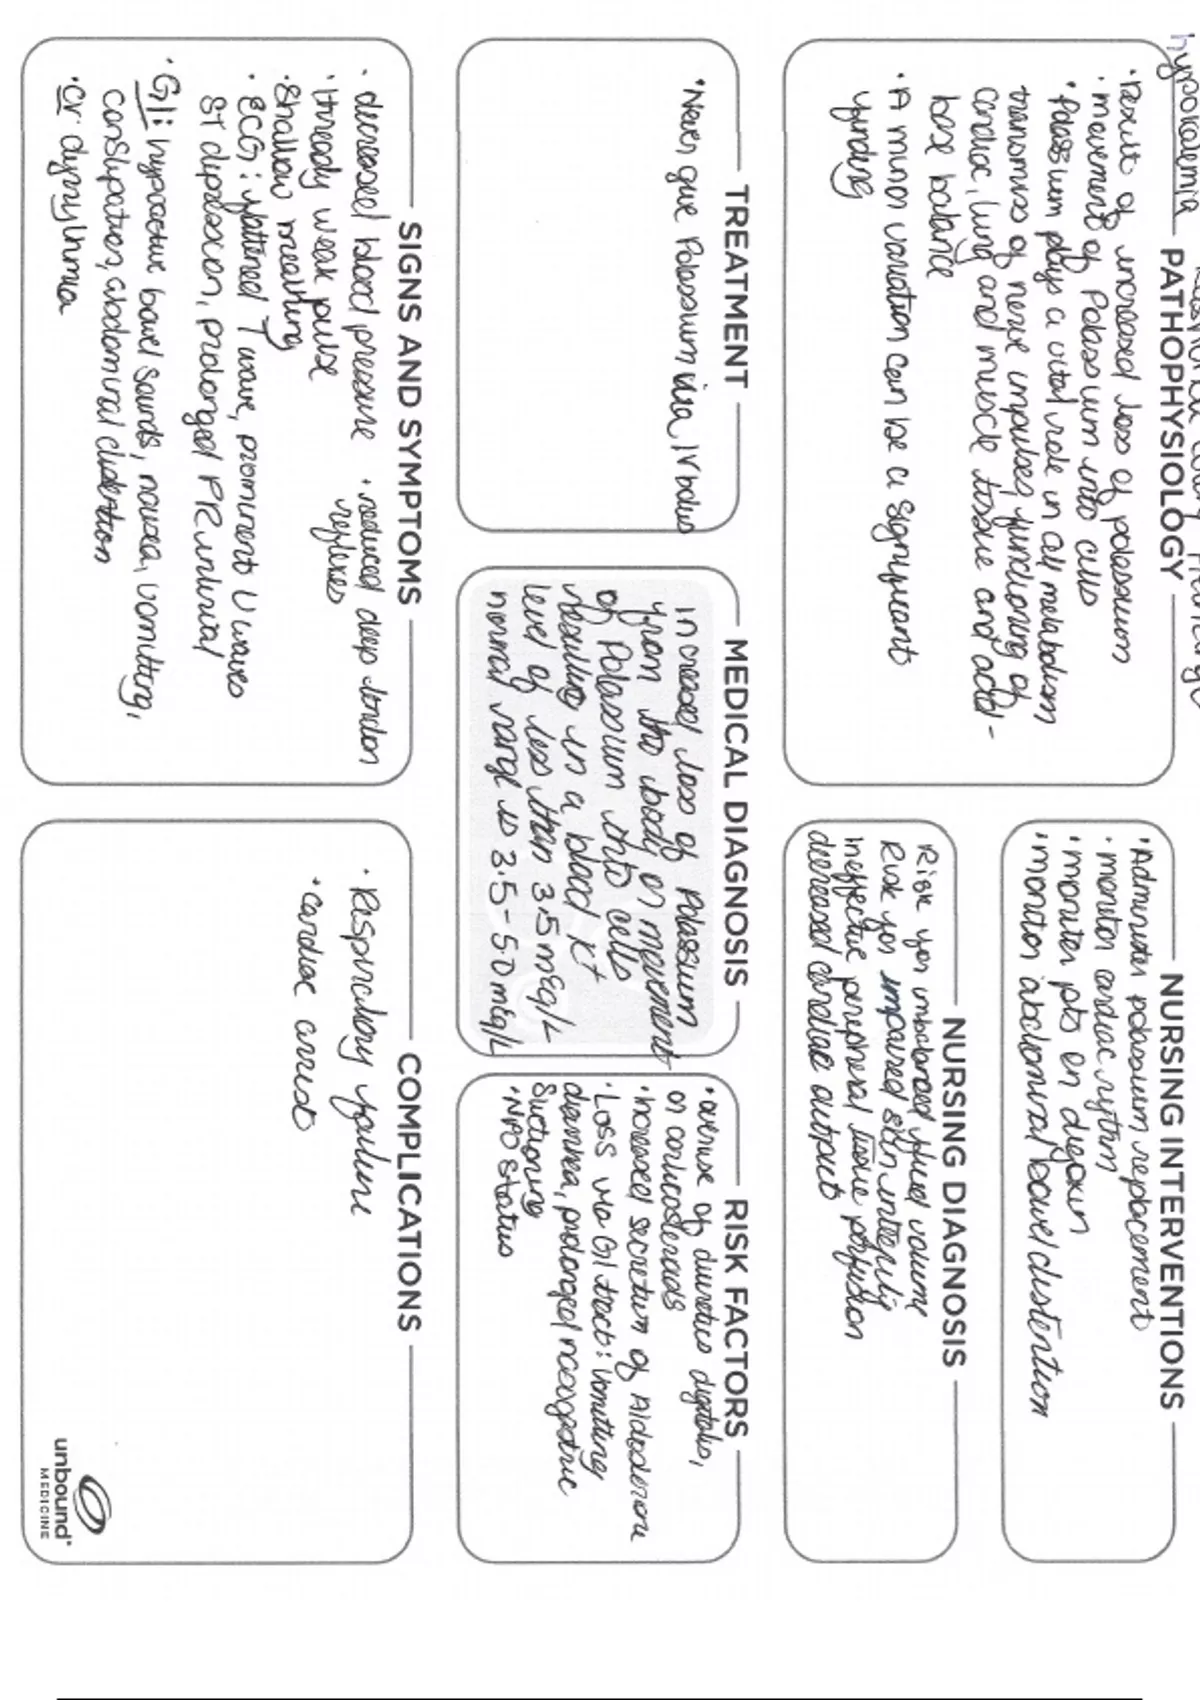 hypokalemia
PATHOPHYSIOLOGY
• Result of increased loss of potassium
• movement of Potassium into cells
• Potassium plays a vital role in all metabolism
transmiss of nerve impulses, functioning of
cardiac, lung and muscle tissue and acid-
base balance
• A minor variation can be a significant
finding
NURSING INTERVENTIONS
• Administer potassium replacement
• monitor cardiac rythm
• monitor pts on digoxin
• monitor abdominal bowel distention
NURSING DIAGNOSIS
Risk for imbalanced fluid volume
Risk for impaired skin integrity
ineffective peripheral tissue perfusion
decreased cardiac output
TREATMENT
• Never give Potassium via IV bolus
MEDICAL DIAGNOSIS
increased loss of Potassium
from the body or movement
of Potassium into cells
resulting in a blood K+
level of less than 3.5 mEq/L
normal range is 3.5-5.0 mEq/L
RISK FACTORS
• overuse of diuretics digitalis,
or corticosteroids
• increased secretion of Aldosterone
• Loss via GI tract: vomitting
diarrhea, prolonged nasogastric
suctioning
• NPO status
SIGNS AND SYMPTOMS
• decreased blood pressure • reduced deep tendon
reflexes
• thready weak pulse
• shallow breathing
• ECG: flattened T wave, prominent U waves
ST depression, prolonged PR interval
• GI: hypoactive bowel sounds, nausea, vomitting,
constipation, abdominal distention
• CV: dysrythmia
COMPLICATIONS
• Respiratory failure
• cardiac arrest
unbound
MEDICINE